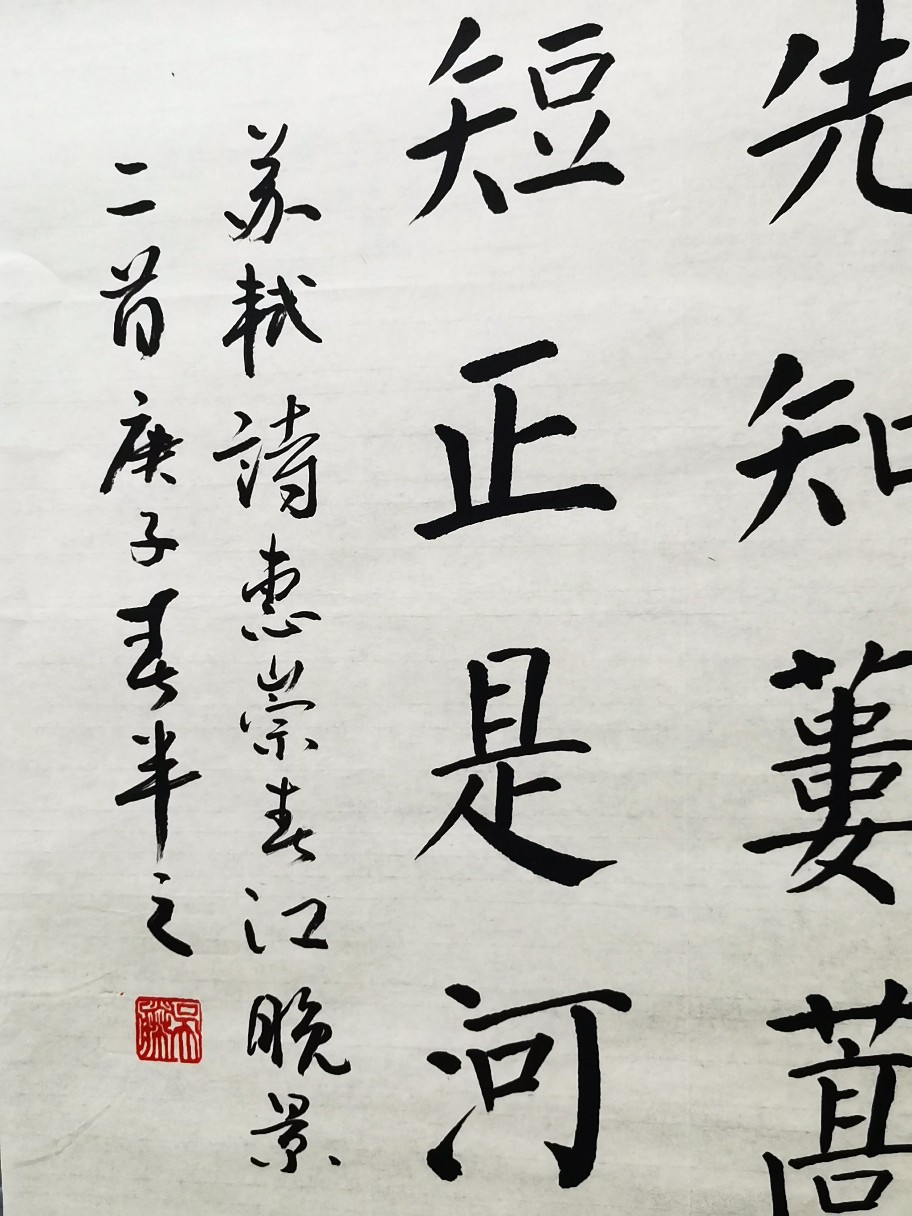 先知蔞蒿
短正是河
苏軾詩惠崇春江晚景
二首庚子春半之